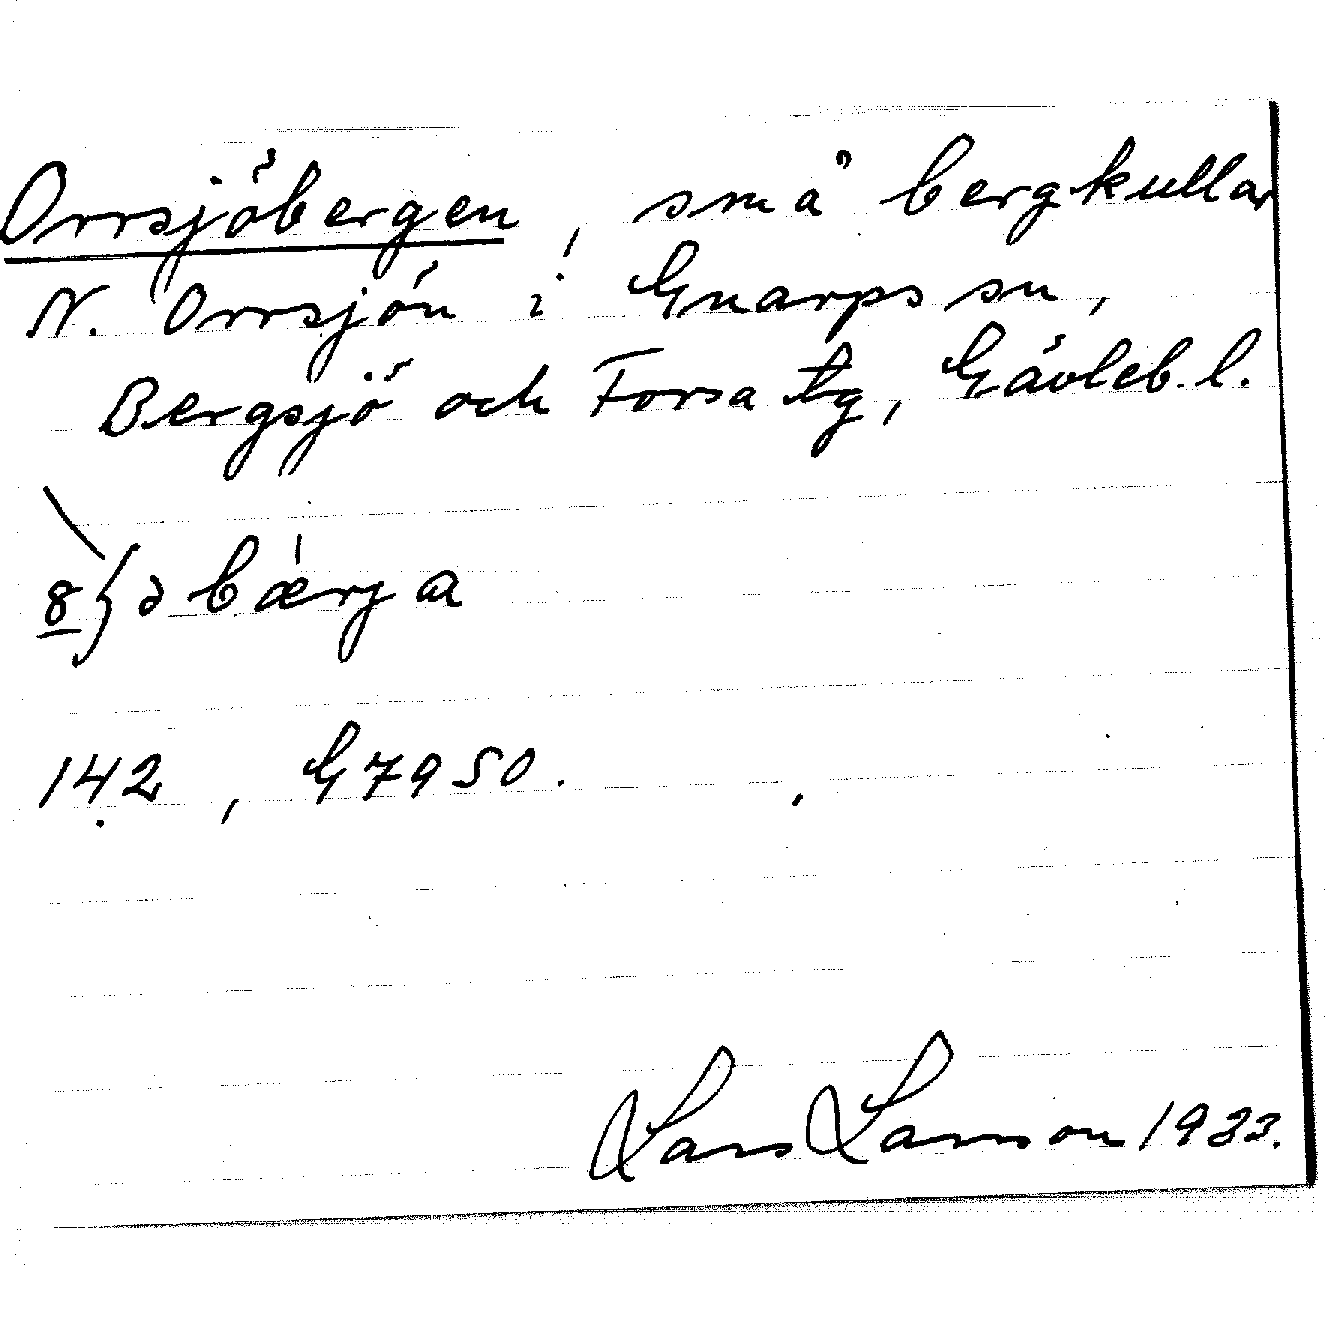 Orrsjöbergen, små bergkullar
N. Orrsjön i Gnarps sn,
Bergsjö och Forsa tg, Gävleb. l.
142, G7950.
Lars Larsson 1933.